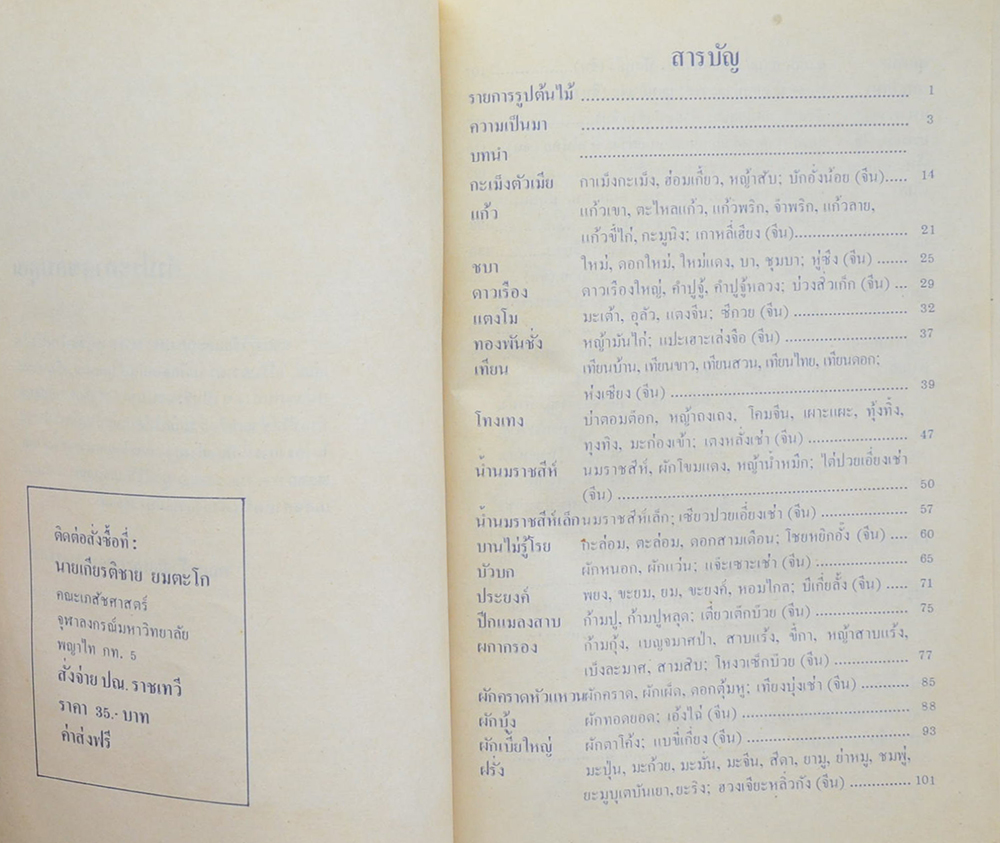 ติดต่อสั่งซื้อที่ :
นายเกียรติชาย ยมตะโก
คณะเภสัชศาสตร์
จุฬาลงกรณ์มหาวิทยาลัย
พญาไท กท. 5
สั่งจ่าย ปณ. ราชเทวี
ราคา 35.- บาท
ค่าส่งฟรี
สารบัญ
รายการรูปต้นไม้ ........ 1
ความเป็นมา ........ 3
บทนำ ........
กะเม็งตัวเมีย กาเม็งกะเม็ง, ฮ่อมเกี้ยว, หญ้าสับ; บักอั่งน้อย (จีน)..... 14
แก้ว แก้วเขา, ตะไหลแก้ว, แก้วพริก, จ๊าพริก, แก้วลาย,
แก้วขี้ไก่, กะมูนิง; เกาหลี่เฮียง (จีน)........ 21
ชบา ใหม่, ดอกใหม่, ใหม่แดง, บา, ชุมบา; หู่ซึ้ง (จีน) ........ 25
ดาวเรือง ดาวเรืองใหญ่, คำปูจู้, คำปูจู้หลวง; บ่วงสิ่วเก็ก (จีน) ... 29
แตงโม มะเต้า, อุลัว, แตงจีน; ซีกวย (จีน) ........ 32
ทองพันชั่ง หญ้ามันไก่; แปะเฮาะเล่งจือ (จีน) ........ 37
เทียน เทียนบ้าน, เทียนขาว, เทียนสวน, เทียนไทย, เทียนดอก;
ห่งเซียง (จีน) ........ 39
โทงเทง บ่าตอมต๊อก, หญ้าถงเถง, โคมจีน, เผาะแผะ, ทุ้งทิ้ง,
ทุงทิง, มะก่องเข้า; เตงหลั่งเช่า (จีน) ........ 47
น้ำนมราชสีห์ นมราชสีห์, ผักโขมแดง, หญ้าน้ำหมึก; ไต่ปวยเอี้ยงเช่า
(จีน) ........ 50
น้ำนมราชสีห์เล็ก นมราชสีห์เล็ก; เซียวปวยเอี้ยงเช่า (จีน) ........ 57
บานไม่รู้โรย กะล่อม, ตะล่อม, ดอกสามเดือน; โชยหยิกอั้ง (จีน) .... 60
บัวบก ผักหนอก, ผักแว่น; แจ๊ะเซาะเช่า (จีน) ........ 65
ประยงค์ พยง, ขะยม, ยม, ขะยงค์, หอมไกล; บี๋เกี่ยลั้ง (จีน) ........ 71
ปีกแมลงสาบ ก้ามปู, ก้ามปูหลุด; เตี๋ยวเต๊กบ้วย (จีน) ........ 75
ผกากรอง ก้ามกุ้ง, เบญจมาศป่า, สาบแร้ง, ขี้กา, หญ้าสาบแร้ง,
เบ็งละมาศ, สามสิบ; โหงวเซ็กบ๊วย (จีน) ........ 77
ผักคราดหัวแหวน ผักคราด, ผักเผ็ด, ดอกตุ้มหู; เทียงบุ่งเช่า (จีน) ........ 85
ผักบุ้ง ผักทอดยอด; เอ้งไฉ่ (จีน) ........ 88
ผักเบี้ยใหญ่ ผักตาโค้ง; แบขี่เกี่ยง (จีน) ........ 93
ฝรั่ง มะปุ่น, มะก้วย, มะมั่น, มะจีน, สีดา, ยามู, ย่าหมู, ชมพู่,
ยะมูบุเตบันเยา, ยะริง; ฮวงเจียะหลิ่วกัง (จีน) ........ 101